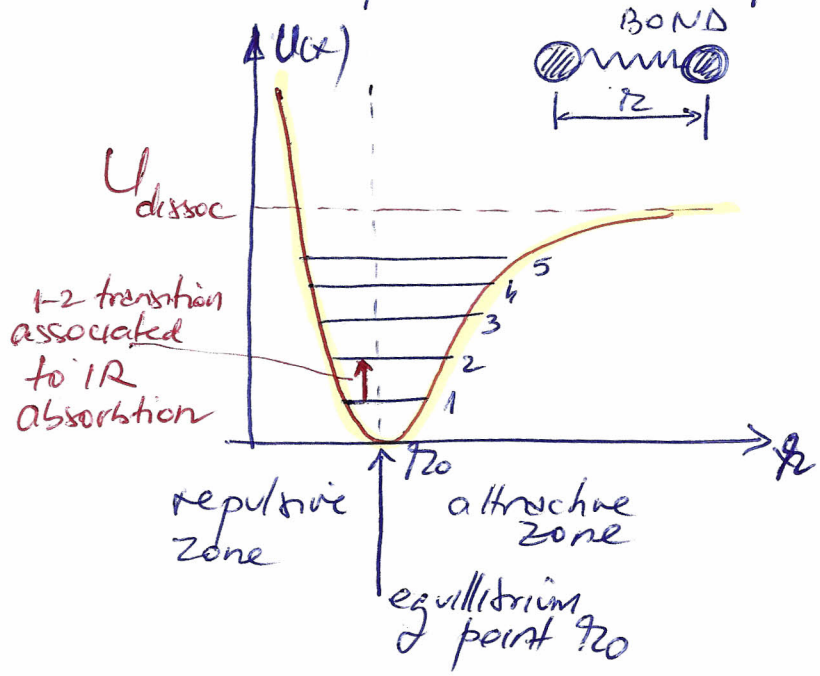 BOND
U(x)
r
U dissoc
1-2 transition
associated
to IR
absorbtion
5
4
3
2
1
r0
r
repulsive
zone
attractive
zone
equillibrium
point r0